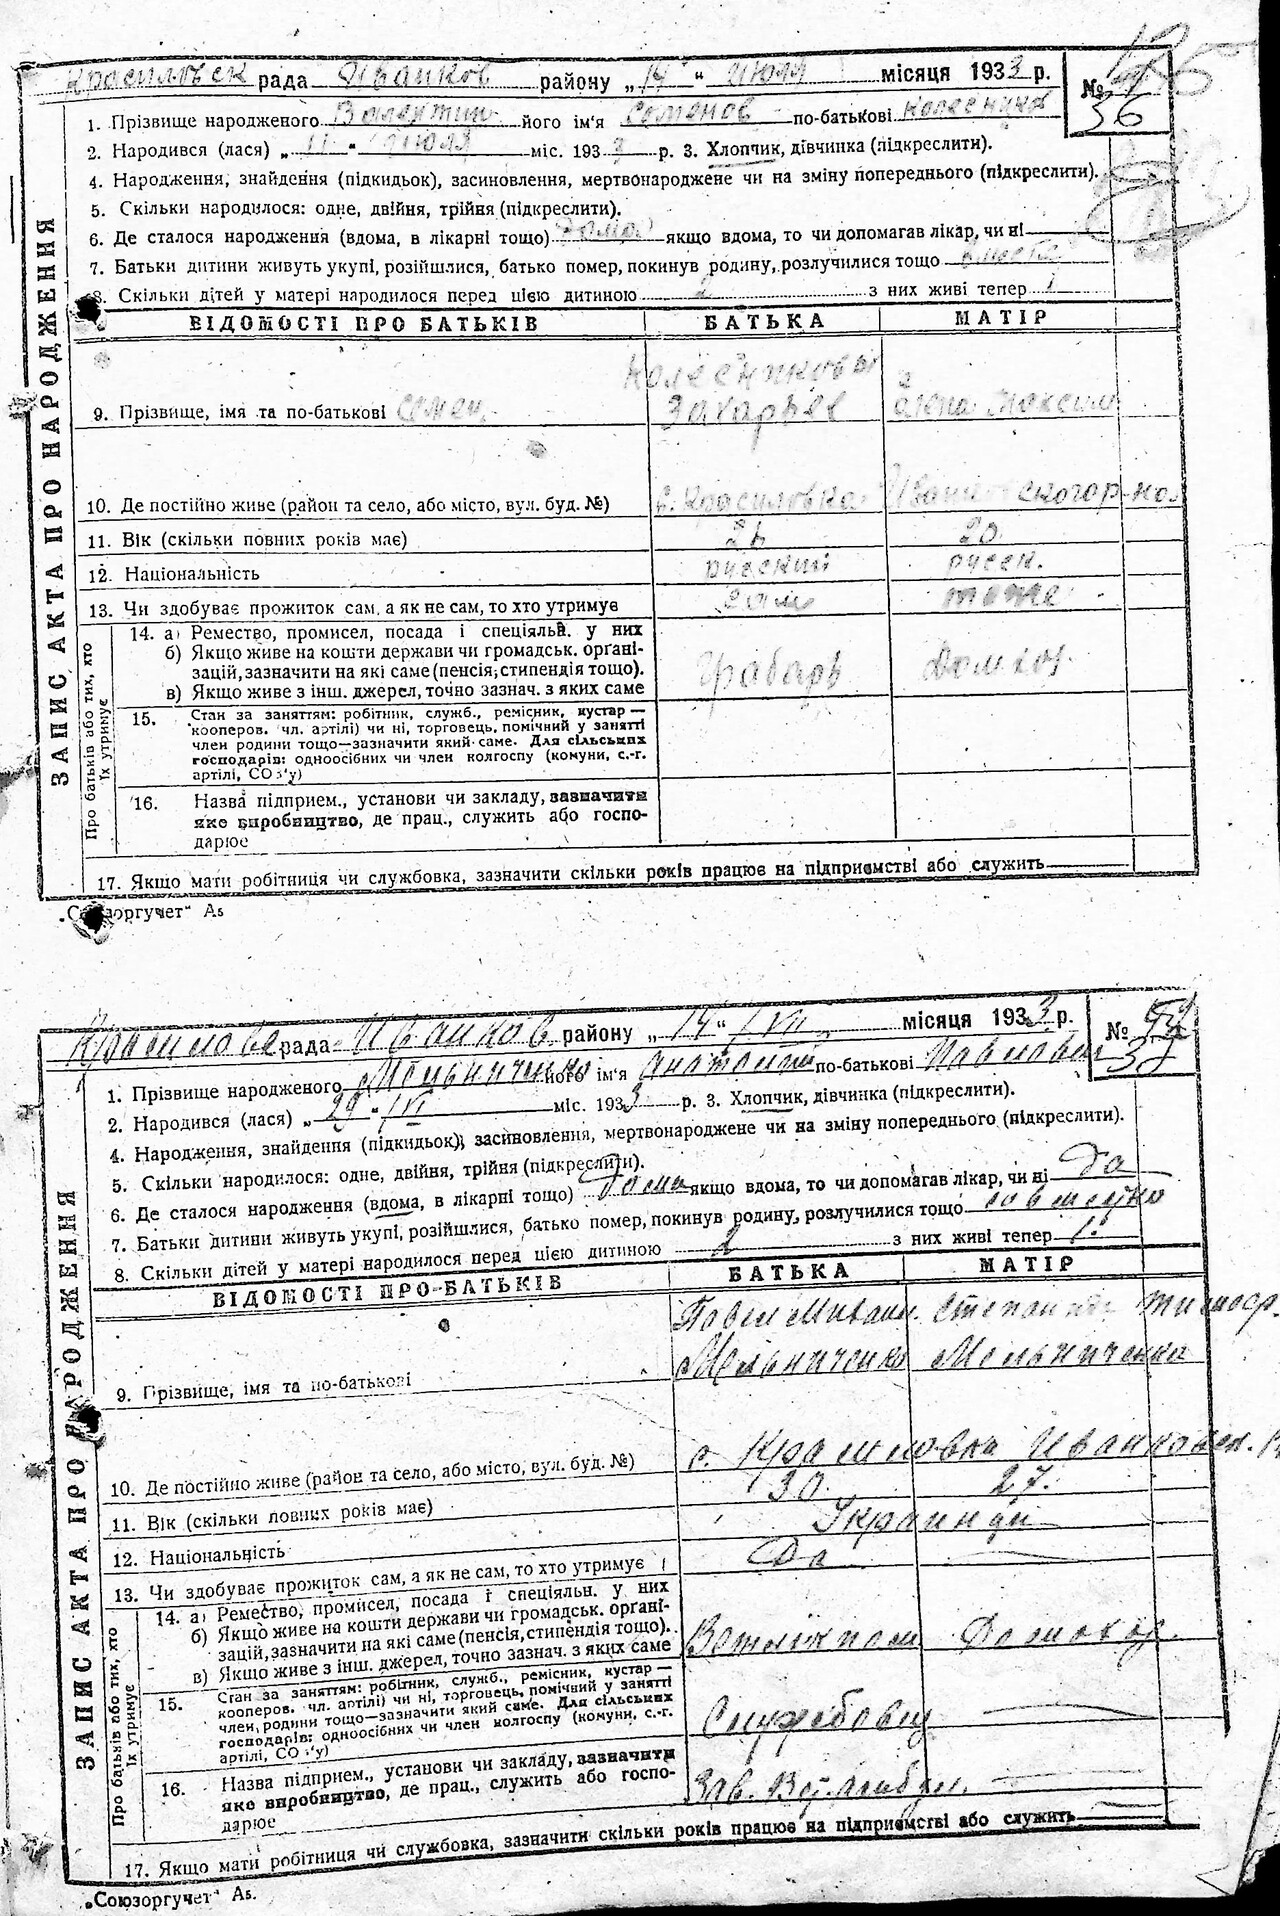 Красиловск рада Иванков району „14“ Июля місяця 1933 р. № 36
1. Прізвище народженого Валентин його ім'я Семенов по-батькові Колесников
2. Народився (лася) „11“ Июля міс. 1933 р. 3. Хлопчик, дівчинка (підкреслити).
4. Народження, знайдення (підкидьок), засиновлення, мертвонароджене чи на зміну попереднього (підкреслити).
5. Скільки народилося: одне, двійня, трійня (підкреслити).
6. Де сталося народження (вдома, в лікарні тощо) дома якщо вдома, то чи допомагав лікар, чи ні
7. Батьки дитини живуть укупі, розійшлися, батько помер, покинув родину, розлучилися тощо вместе
8. Скільки дітей у матері народилося перед цією дитиною 2 з них живі тепер 1
ЗАПИС АКТА ПРО НАРОДЖЕННЯ
ВІДОМОСТІ ПРО БАТЬКІВ БАТЬКА МАТІР
Колесниковы
9. Прізвище, імя та по-батькові Семен Захарьев Елена Максим
10. Де постійно живе (район та село, або місто, вул. буд. №) с. Красиловка Иванковского р-на
11. Вік (скільки повних років має) 20
12. Національність русский русск.
13. Чи здобуває прожиток сам, а як не сам, то хто утримує сам тоже
Про батьків або тих, хто їх утримує
14. а) Ремество, промисел, посада і спеціяльн. у них
б) Якщо живе на кошти держави чи громадськ. органі-
зацій, зазначити на які саме (пенсія, стипендія тощо). Грабарь Домхоз.
в) Якщо живе з інш. джерел, точно зазнач. з яких саме
15. Стан за заняттям: робітник, служб., ремісник, кустар —
кооперов. чл. артілі) чи ні, торговець, помічний у занятті
член родини тощо—зазначити який саме. Для сільських
господарів: одноосібних чи член колгоспу (комуни, с.-г.
артілі, СОЗ'у)
16. Назва підприєм., установи чи закладу, зазначити
яке виробництво, де прац., служить або госпо-
дарює
17. Якщо мати робітниця чи службовка, зазначити скільки років працює на підприємстві або служить
„Союзоргучет“ А5
рада Иванков району „14“ /VII місяця 1933 р. №
1. Прізвище народженого Мельниченко його ім'я Анатолий по-батькові Павлович
2. Народився (лася) „29“ /VI міс. 1933 р. 3. Хлопчик, дівчинка (підкреслити).
4. Народження, знайдення (підкидьок), засиновлення, мертвонароджене чи на зміну попереднього (підкреслити).
5. Скільки народилося: одне, двійня, трійня (підкреслити).
6. Де сталося народження (вдома, в лікарні тощо) Дома якщо вдома, то чи допомагав лікар, чи ні Да
7. Батьки дитини живуть укупі, розійшлися, батько помер, покинув родину, розлучилися тощо совместно
8. Скільки дітей у матері народилося перед цією дитиною 2 з них живі тепер 1.
ЗАПИС АКТА ПРО НАРОДЖЕННЯ
ВІДОМОСТІ ПРО БАТЬКІВ БАТЬКА МАТІР
Павел
9. Прізвище, імя та по-батькові Мельниченко Мельниченко
10. Де постійно живе (район та село, або місто, вул. буд. №) с. Красиловка Иванковск.
11. Вік (скільки повних років має) 30. 27.
12. Національність Украинци
13. Чи здобуває прожиток сам, а як не сам, то хто утримує Да
Про батьків або тих, хто їх утримує
14. а) Ремество, промисел, посада і спеціяльн. у них
б) Якщо живе на кошти держави чи громадськ. органі-
зацій, зазначити на які саме (пенсія, стипендія тощо). Домохоз.
в) Якщо живе з інш. джерел, точно зазнач. з яких саме
15. Стан за заняттям: робітник, служб., ремісник, кустар —
кооперов. чл. артілі) чи ні, торговець, помічний у занятті
член родини тощо—зазначити який саме. Для сільських
господарів: одноосібних чи член колгоспу (комуни, с.-г.
артілі, СОЗ'у)
16. Назва підприєм., установи чи закладу, зазначити
яке виробництво, де прац., служить або госпо- Зав.
дарює
17. Якщо мати робітниця чи службовка, зазначити скільки років працює на підприємстві або служить
„Союзоргучет“ А5.